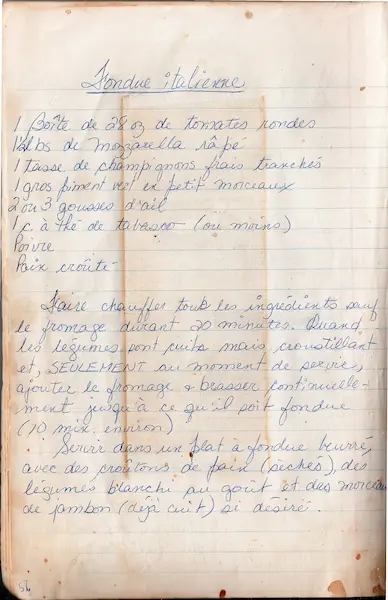 Fondue italienne
1 boîte de 28 oz de tomates rondes
lbs de mozzarella râpé
1 tasse de champignons frais tranchés
1 gros piment vert en petit morceaux
2 ou 3 gousses d'ail
1 c. à thé de tabasco (ou moins)
Poivre
Pain croûté
Faire chauffer tous les ingrédients sauf
le fromage durant 20 minutes. Quand
les légumes sont cuits mais croustillant
et, SEULEMENT au moment de servir,
ajouter le fromage & brasser continuelle-
ment jusqu'à ce qu'il soit fondue
(10 min. environ)
Servir dans un plat à fondue beurré,
avec des croûtons de pain (séchés), des
légumes blanchi au goût et des morceau
de jambon (déjà cuit) si désiré.